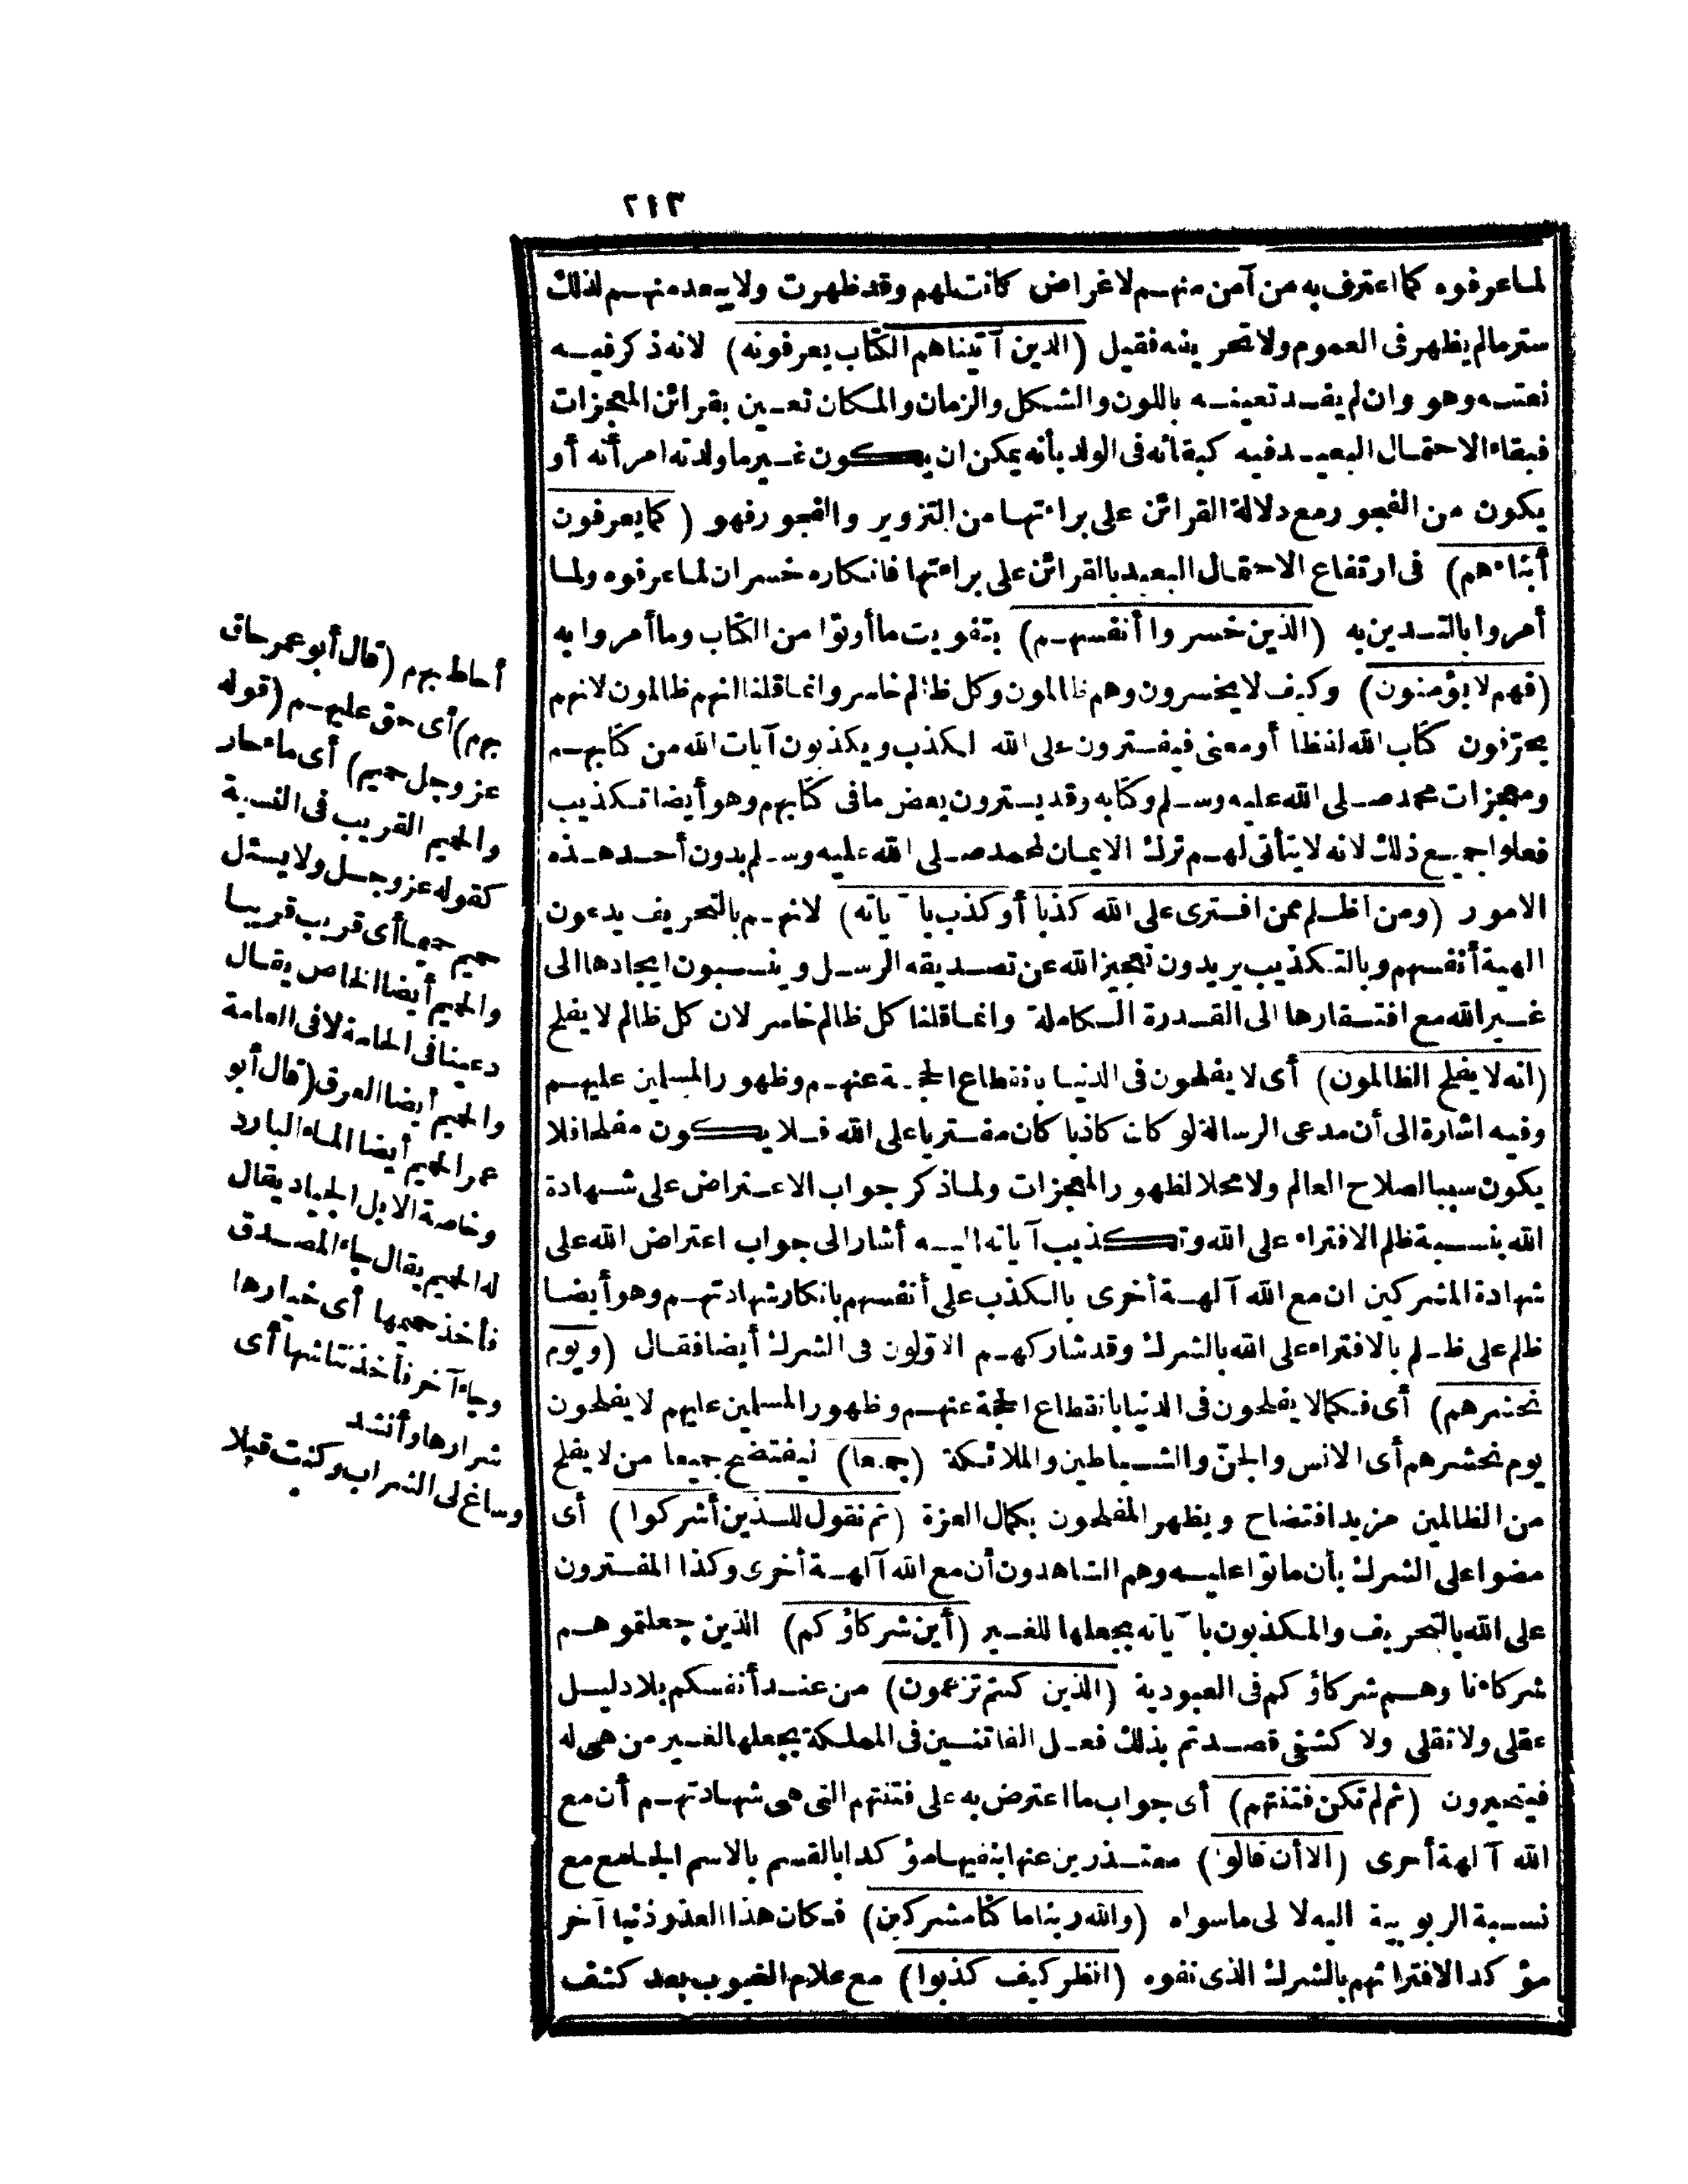 ٢١٣
لما عرفوه كما اعترف به من آمن منهم لاغراض كانت لهم وقد ظهرت ولا يبعد منهم لذلك
ستر مالم يظهر فى العموم ولا تحريفه فقيل (الذين آتيناهم الكتاب يعرفونه) لانه ذكر فيه
نعته وهو وان لم يفد تعينه باللون والشكل والزمان والمكان تعين بقرائن المعجزات
فبقاء الاحتمال البعيد فيه كبقائه فى الولد بأنه يمكن ان يكون غير ما ولدته امرأته أو
يكون من الفجور مع دلالة القرائن على براءتها من التزوير والفجور فهو (كما يعرفون
أبناءهم) فى ارتفاع الاحتمال البعيد بالقرائن على براءتها فانكاره خسران لما عرفوه ولما
أمروا بالتدين به (الذين خسروا أنفسهم) بتفويت ما أوتوا من الكتاب وما أمروا به
(فهم لا يؤمنون) وكيف لا يخسرون وهم ظالمون وكل ظالم خاسر وانما قلنا انهم ظالمون لانهم
يحرّفون كتاب الله لفظا أو معنى فيفترون على الله الكذب ويكذبون آيات الله من كتابهم
ومعجزات محمد صلى الله عليه وسلم وكتابه وقد يسترون بعض ما فى كتابهم وهو أيضا تكذيب
فعلوا جميع ذلك لانه لا يتأتى لهم ترك الايمان لمحمد صلى الله عليه وسلم بدون أحد هذه
الامور (ومن اظلم ممن افترى على الله كذبا أو كذب بآياته) لانهم بالتحريف يدعون
الهية أنفسهم وبالتكذيب يريدون تعجيز الله عن تصديقه الرسل وينسبون ايجادها الى
غير الله مع افتقارها الى القدرة الكاملة وانما قلنا كل ظالم خاسر لان كل ظالم لا يفلح
(انه لا يفلح الظالمون) أى لا يفلحون فى الدنيا بانقطاع الحجة عنهم وظهور المسلمين عليهم
وفيه اشارة الى أن مدعى الرسالة لو كان كاذبا كان مفتريا على الله فلا يكون مفلحا فلا
يكون سببا لصلاح العالم ولا محلا لظهور المعجزات ولما ذكر جواب الاعتراض على شهادة
الله بنسبة ظلم الافتراء على الله وتكذيب آياته اليه أشار الى جواب اعتراض الله على
شهادة المشركين ان مع الله آلهة أخرى بالكذب على أنفسهم بانكار شهادتهم وهو أيضا
ظلم على ظلم بالافتراء على الله بالشرك وقد شاركهم الاوّلون فى الشرك أيضا فقال (ويوم
نحشرهم) أى فكما لا يفلحون فى الدنيا بانقطاع الحجة عنهم وظهور المسلمين عليهم لا يفلحون
يوم نحشرهم أى الانس والجنّ والشياطين والملائكة (جميعا) ليفتضح جميعا من لا يفلح
من الظالمين مزيد افتضاح ويظهر المفلحون بكمال العزة (ثم نقول للذين أشركوا) أى
مضوا على الشرك بأن ماتوا عليه وهم الشاهدون أن مع الله آلهة أخرى وكذا المفترون
على الله بالتحريف والمكذبون بآياته بجعلها للغير (أين شركاؤكم) الذين جعلتموهم
شركاءنا وهم شركاؤكم فى العبودية (الذين كنتم تزعمون) من عند أنفسكم بلا دليل
عقلى ولا نقلى ولا كشفى قصدتم بذلك فعل الفاتنين فى المملكة بجعلها لغير من هى له
فيتحيرون (ثم لم تكن فتنتهم) أى جواب ما اعترض به على فتنتهم التى هى شهادتهم أن مع
الله آلهة أخرى (الا أن قالوا) معتذرين عنها بنفيها مؤكدا بالقسم بالاسم الجامع مع
نسبة الربوبية اليه لا لى ما سواه (والله ربنا ما كنّا مشركين) فكان هذا العذر ذنبا آخر
مؤكدا لافترائهم بالشرك الذى نفوه (انظر كيف كذبوا) مع علام الغيوب بعد كشف
أحاط بهم (قال أبو عمر حاق
بهم) أى حق عليهم (قوله
عز وجل حميم) أى ماء حار
والحميم القريب فى النسبة
كقوله عز وجل ولا يسئل
حميم حميما أى قريب قريبا
والحميم أيضا الخاص يقال
دعينا فى الحامة لا فى العامة
والحميم أيضا العرق (قال أبو
عمر الحميم أيضا الماء البارد
وخاصة الابل الجياد يقال
له الحميم يقال جاء المصدق
فأخذ حميمها أى خيارها
وجاء آخر فأخذ نتاشها أى
شرارها وأنشد
وساغ لى الشراب وكنت قبلا